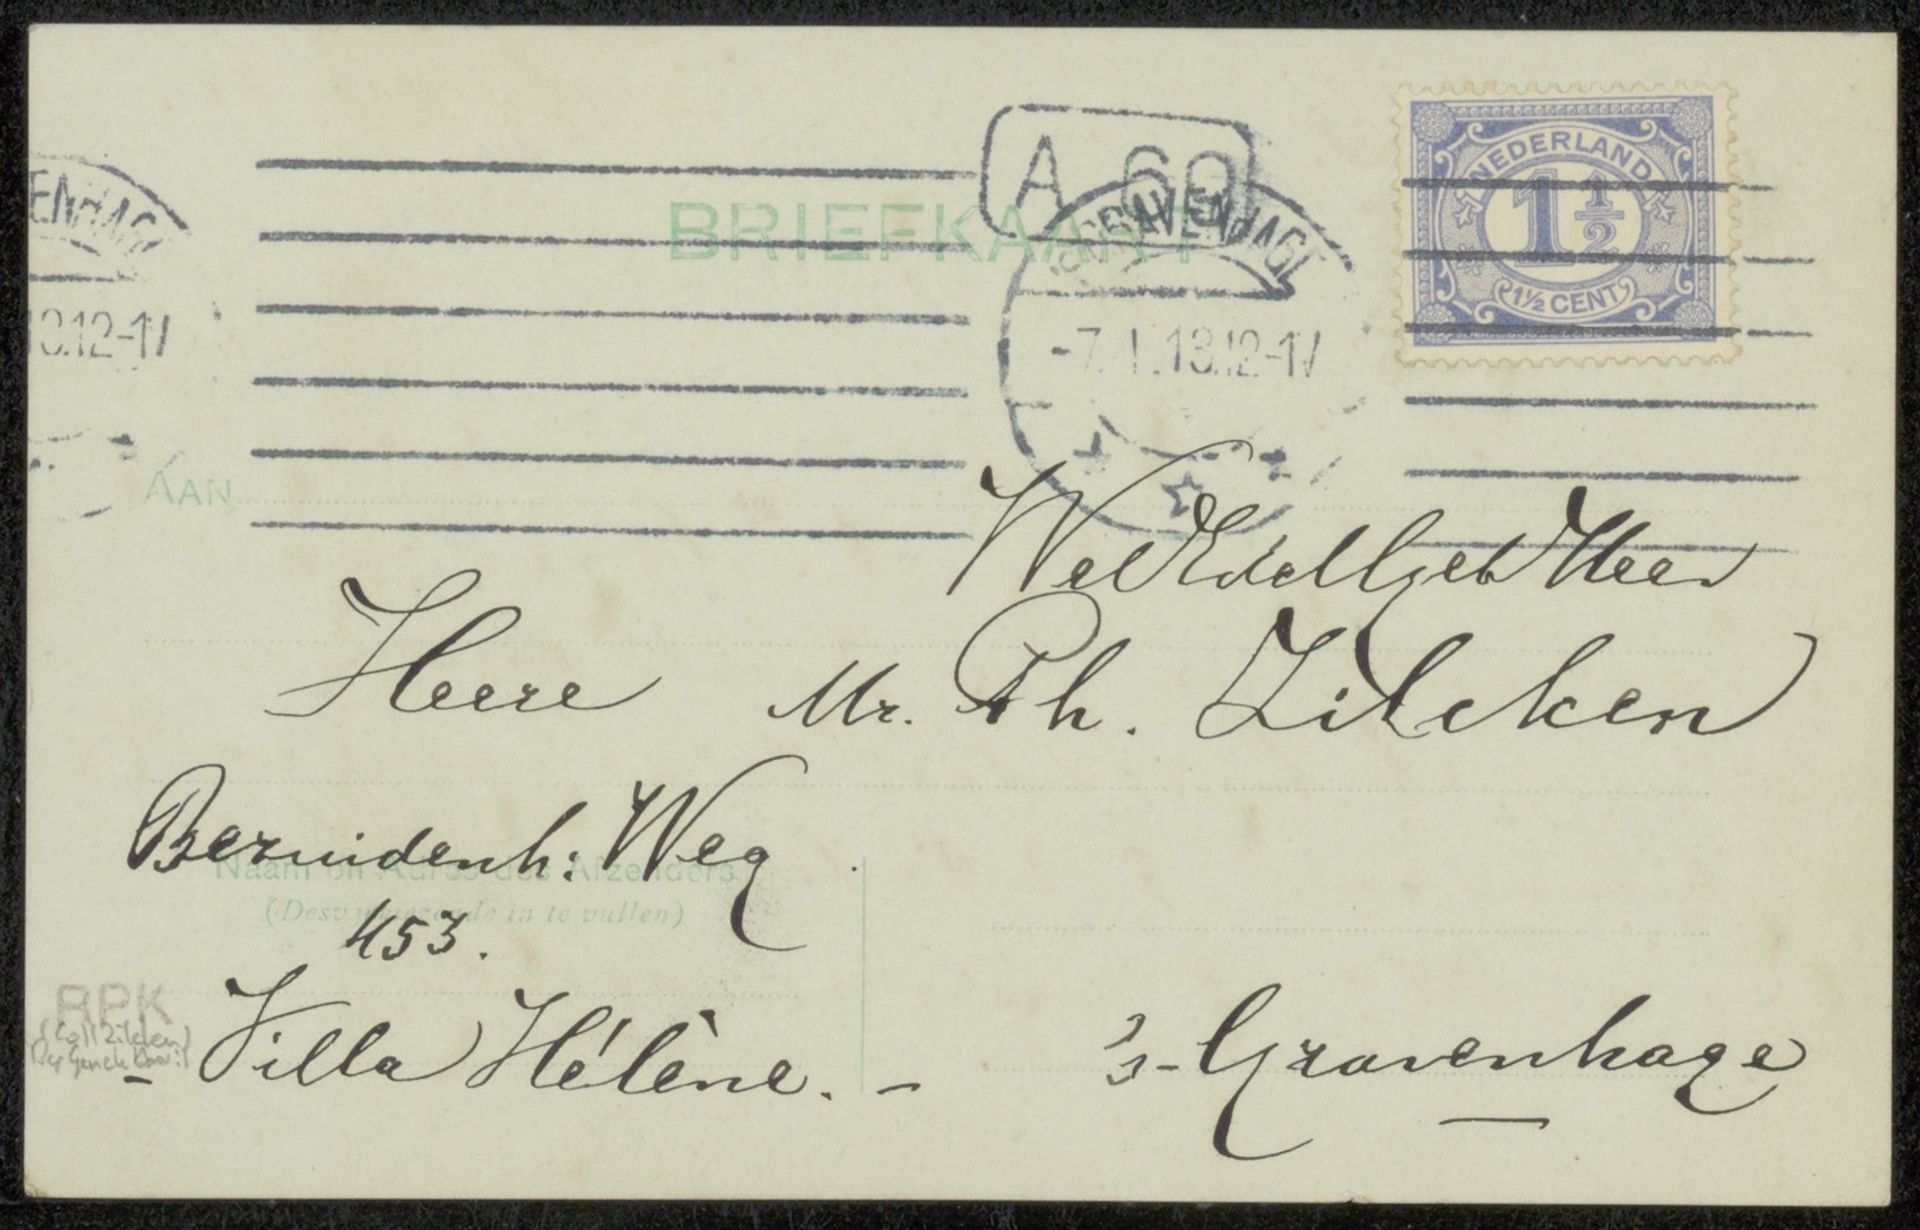 A 60
NEDERLAND
1 1/2
1½ CENT
BRIEFKAART
'S GRAVENHAGE
ENHAGE
-7.1.13.12-1V
13.12-1V
AAN
WelEdelGeb Heer
Heere Mr. Ph. Zilcken
Bezuidenh: Weg
Naam en Adres des Afzenders
(Desvereischende in te vullen)
453.
RPK
(Coll Zilcken)
- Villa Hélène. -
's-Gravenhage